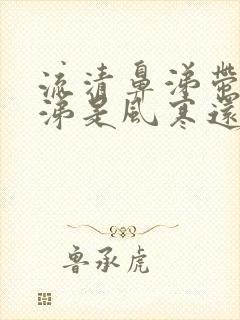 流清鼻涕帶
涕是風寒還
魯承虎